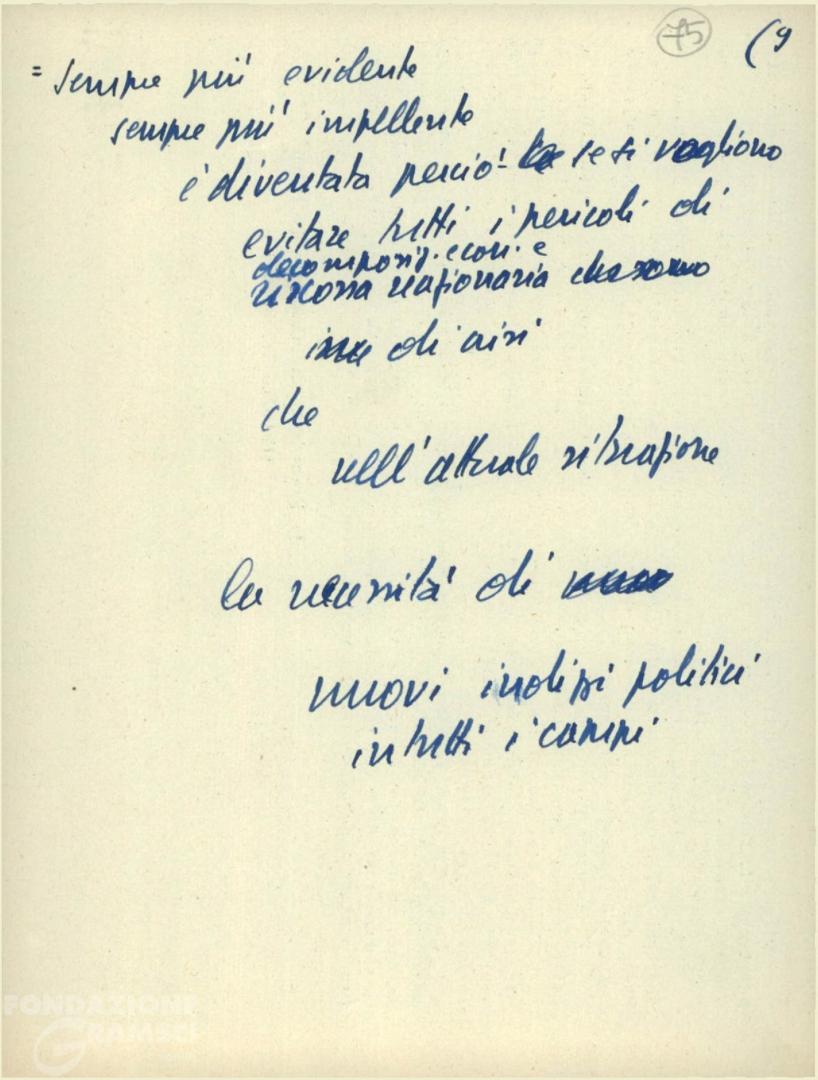 75 (9
= sempre più evidente
sempre più impellente
è diventata perciò - la se si vogliono
evitare tutti i pericoli di
decomposiz. econ. e
riscossa reazionaria che sono
di crisi
che
nell'attuale situazione
la necessità di
nuovi indirizzi politici
in tutti i campi
FONDAZIONE
GRAMSCI